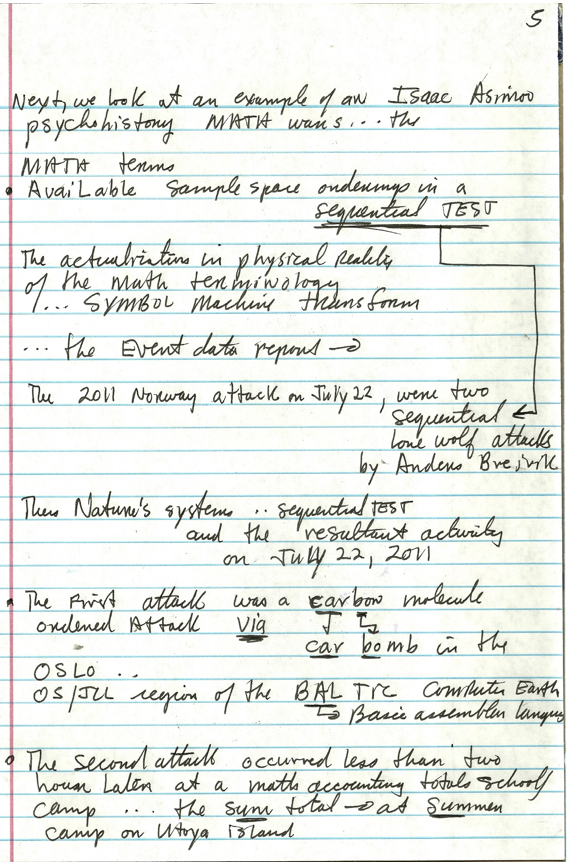 5
Next, we look at an example of an Isaac Asimov
psychohistory MATH wars... the
MATH terms
• Available sample space orderings in a
sequential TEST
The actualizations in physical reality
of the math terminology
/... SYMBOL machine transform
... the Event data reports →
The 2011 Norway attack on July 22, were two
sequential ←
lone wolf attacks
by Anders Breivik
Thus Nature's systems .. sequential TEST
and the resultant activity
on July 22, 2011
• The First attack was a carbon molecule
ordered Attack via
car bomb in the
OSLO ..
OS/JCL region of the BAL TIC Computer Earth
→ Basic assembler langua
• The second attack occurred less than two
hours later at a math accounting totals school
camp ... the sum total → at Summer
camp on Utoya island